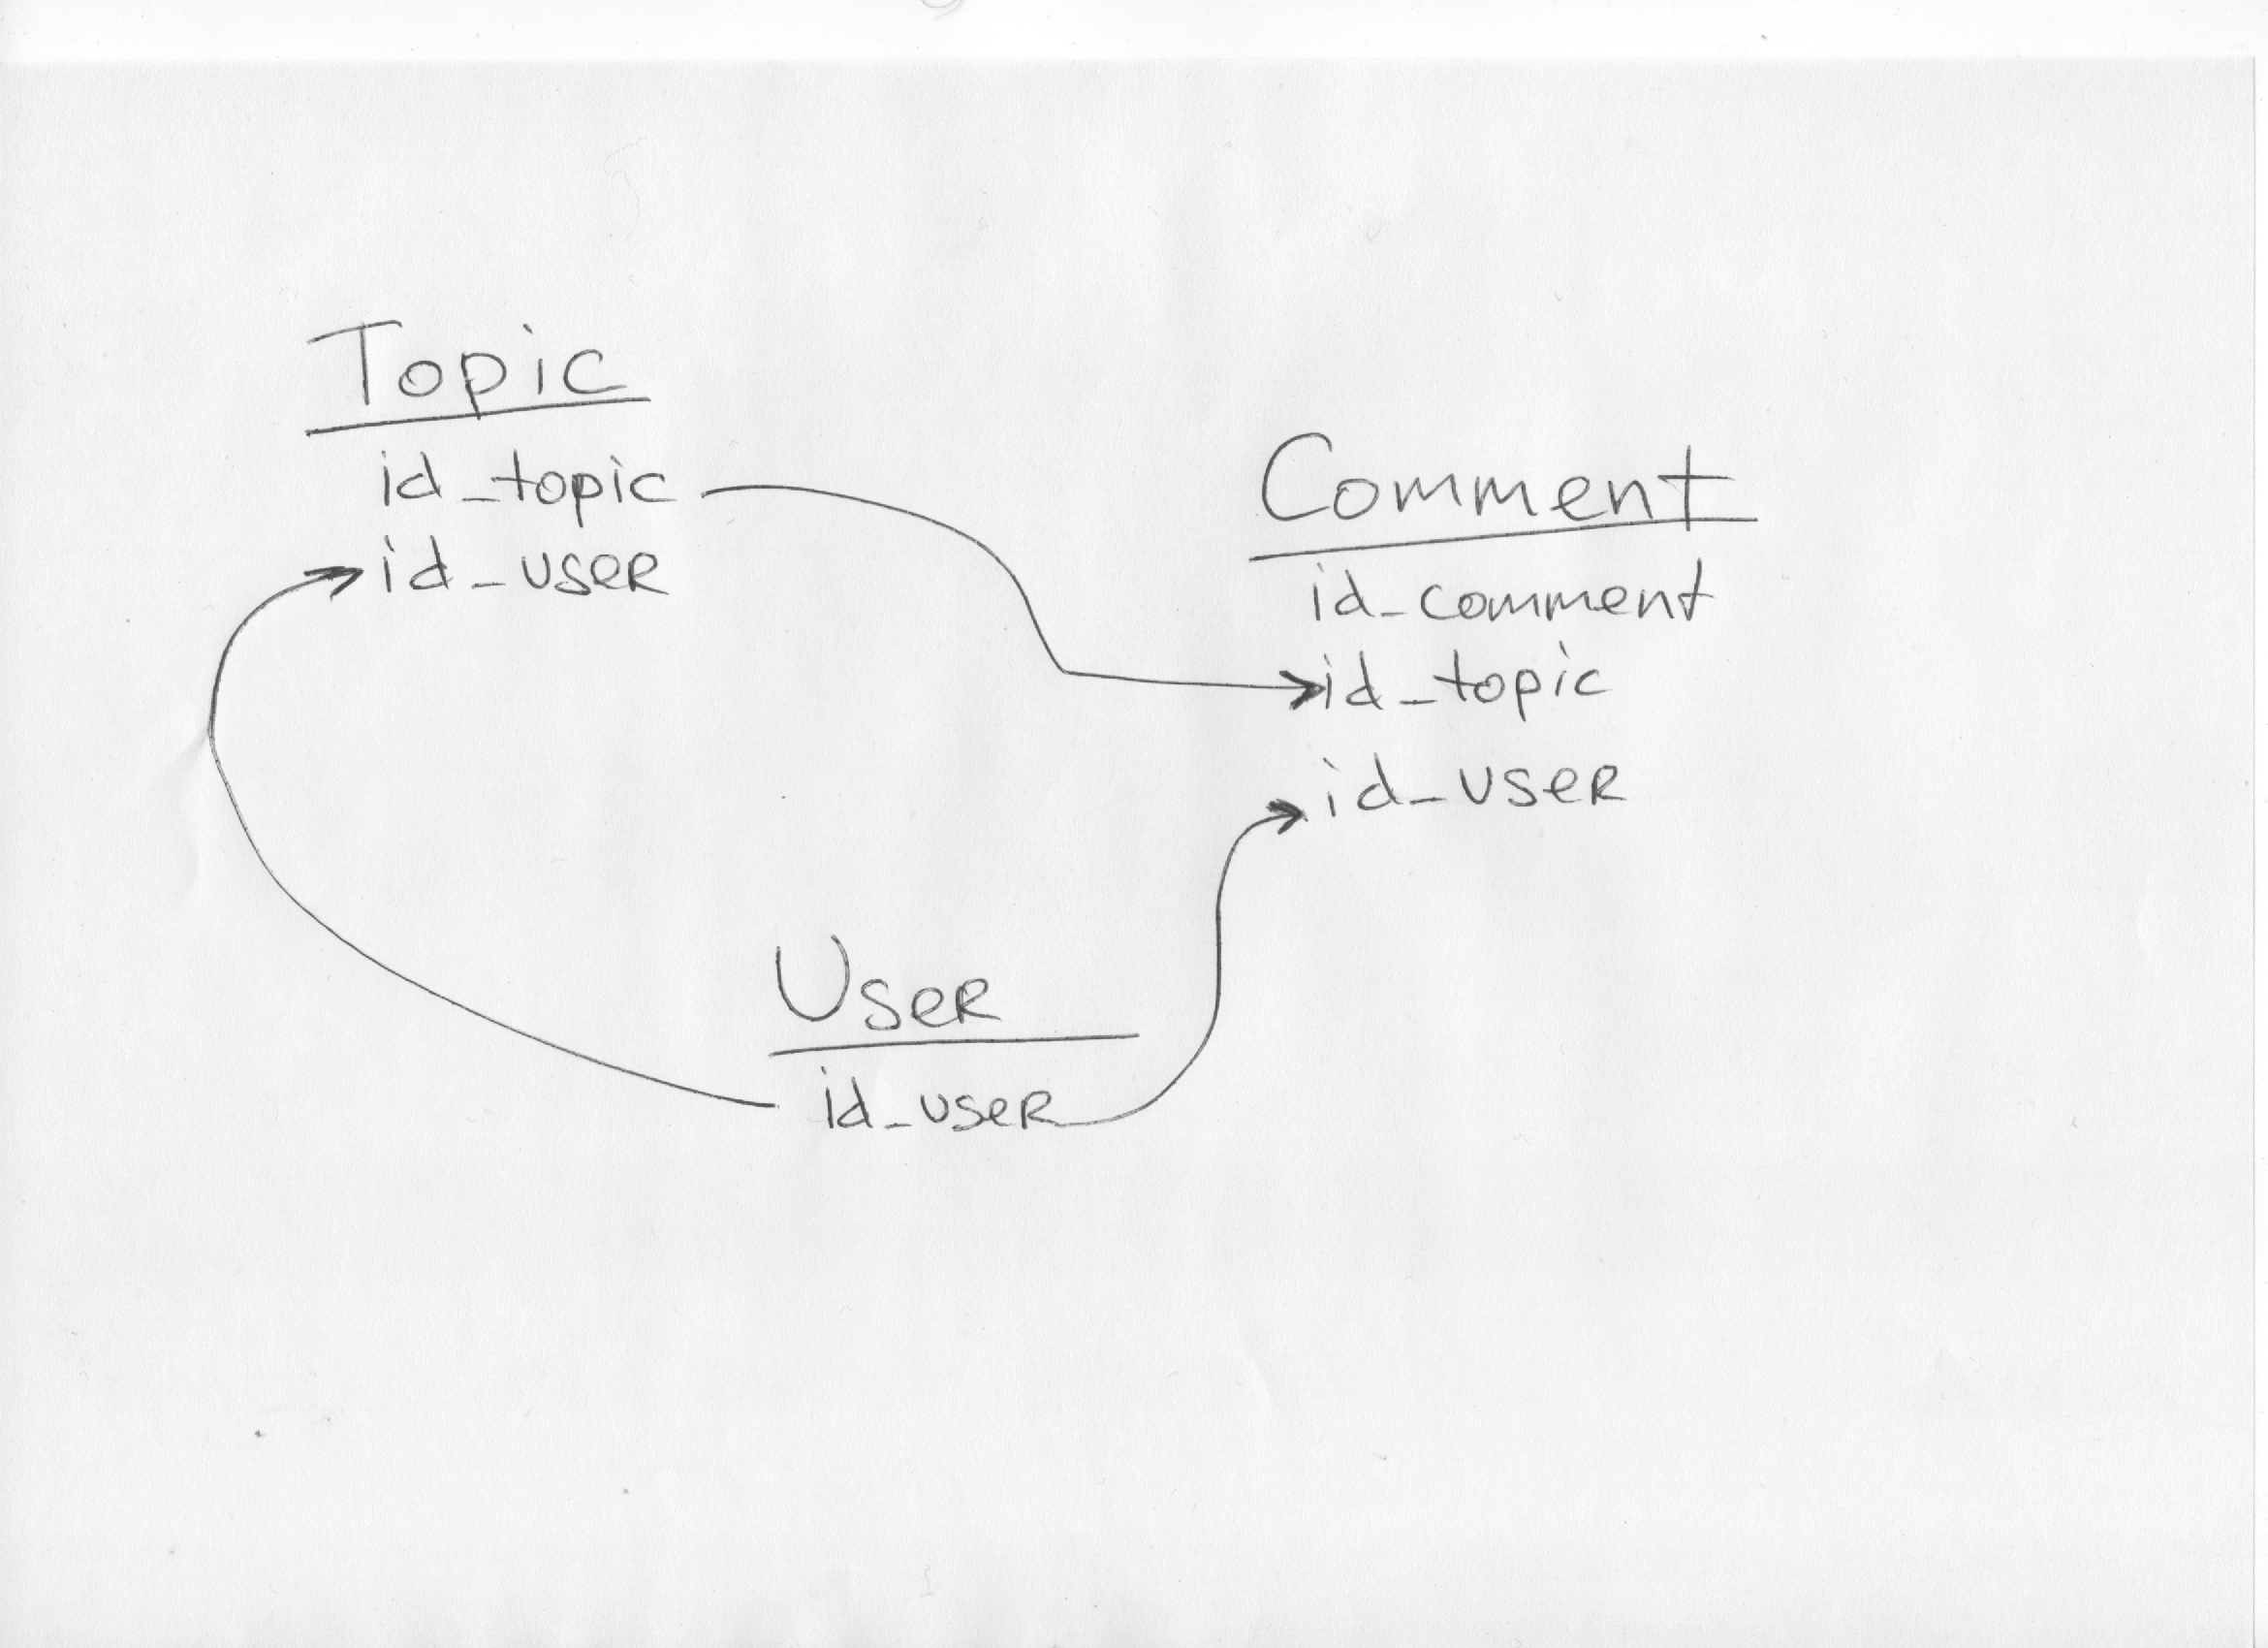 Topic
id_topic
id_user
Comment
id_comment
id_topic
id_user
User
id_user